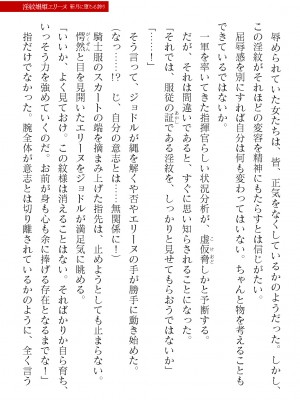 淫紋姫騎エリーヌ 新月に堕ちる誇り
辱められていた女たちは、皆、正気をなくしているかのようだった。しかし、
この淫紋がそれほどの変容を精神にもたらすとは信じがたい。
屈辱感を別にすれば自分は何も変わってはいない。ちゃんと物を考えることも
できているではないか。
一軍を率いてきた指揮官らしい状況分析が、虚仮脅しかと予断する。
だが、それは間違いであると、すぐに思い知らされることになった。
「それでは、服従の証である淫紋を、しっかりと見せてもらおうではないか」
「……！」
そう言って、ジョドルが縄を解くや否やエリーヌの手が勝手に動き始めた。
「なっ……!?　じ、自分の意志とは……無関係に！」
騎士服のスカートの端を摘まみ上げた指先は、止めようとしても止まらない。
愕然と目を見開いたエリーヌをジョドルが満足気に眺める。
がくぜん
「いいか、よく見ておけ。この紋様は消えることはない。そればかりか自ら育ち、
いっそう力を強めていくのだ。お前が身も心も余に捧げる存在となるまでな！」
指だけでなかった。腕全体が意志とは切り離されているかのように、全く言う